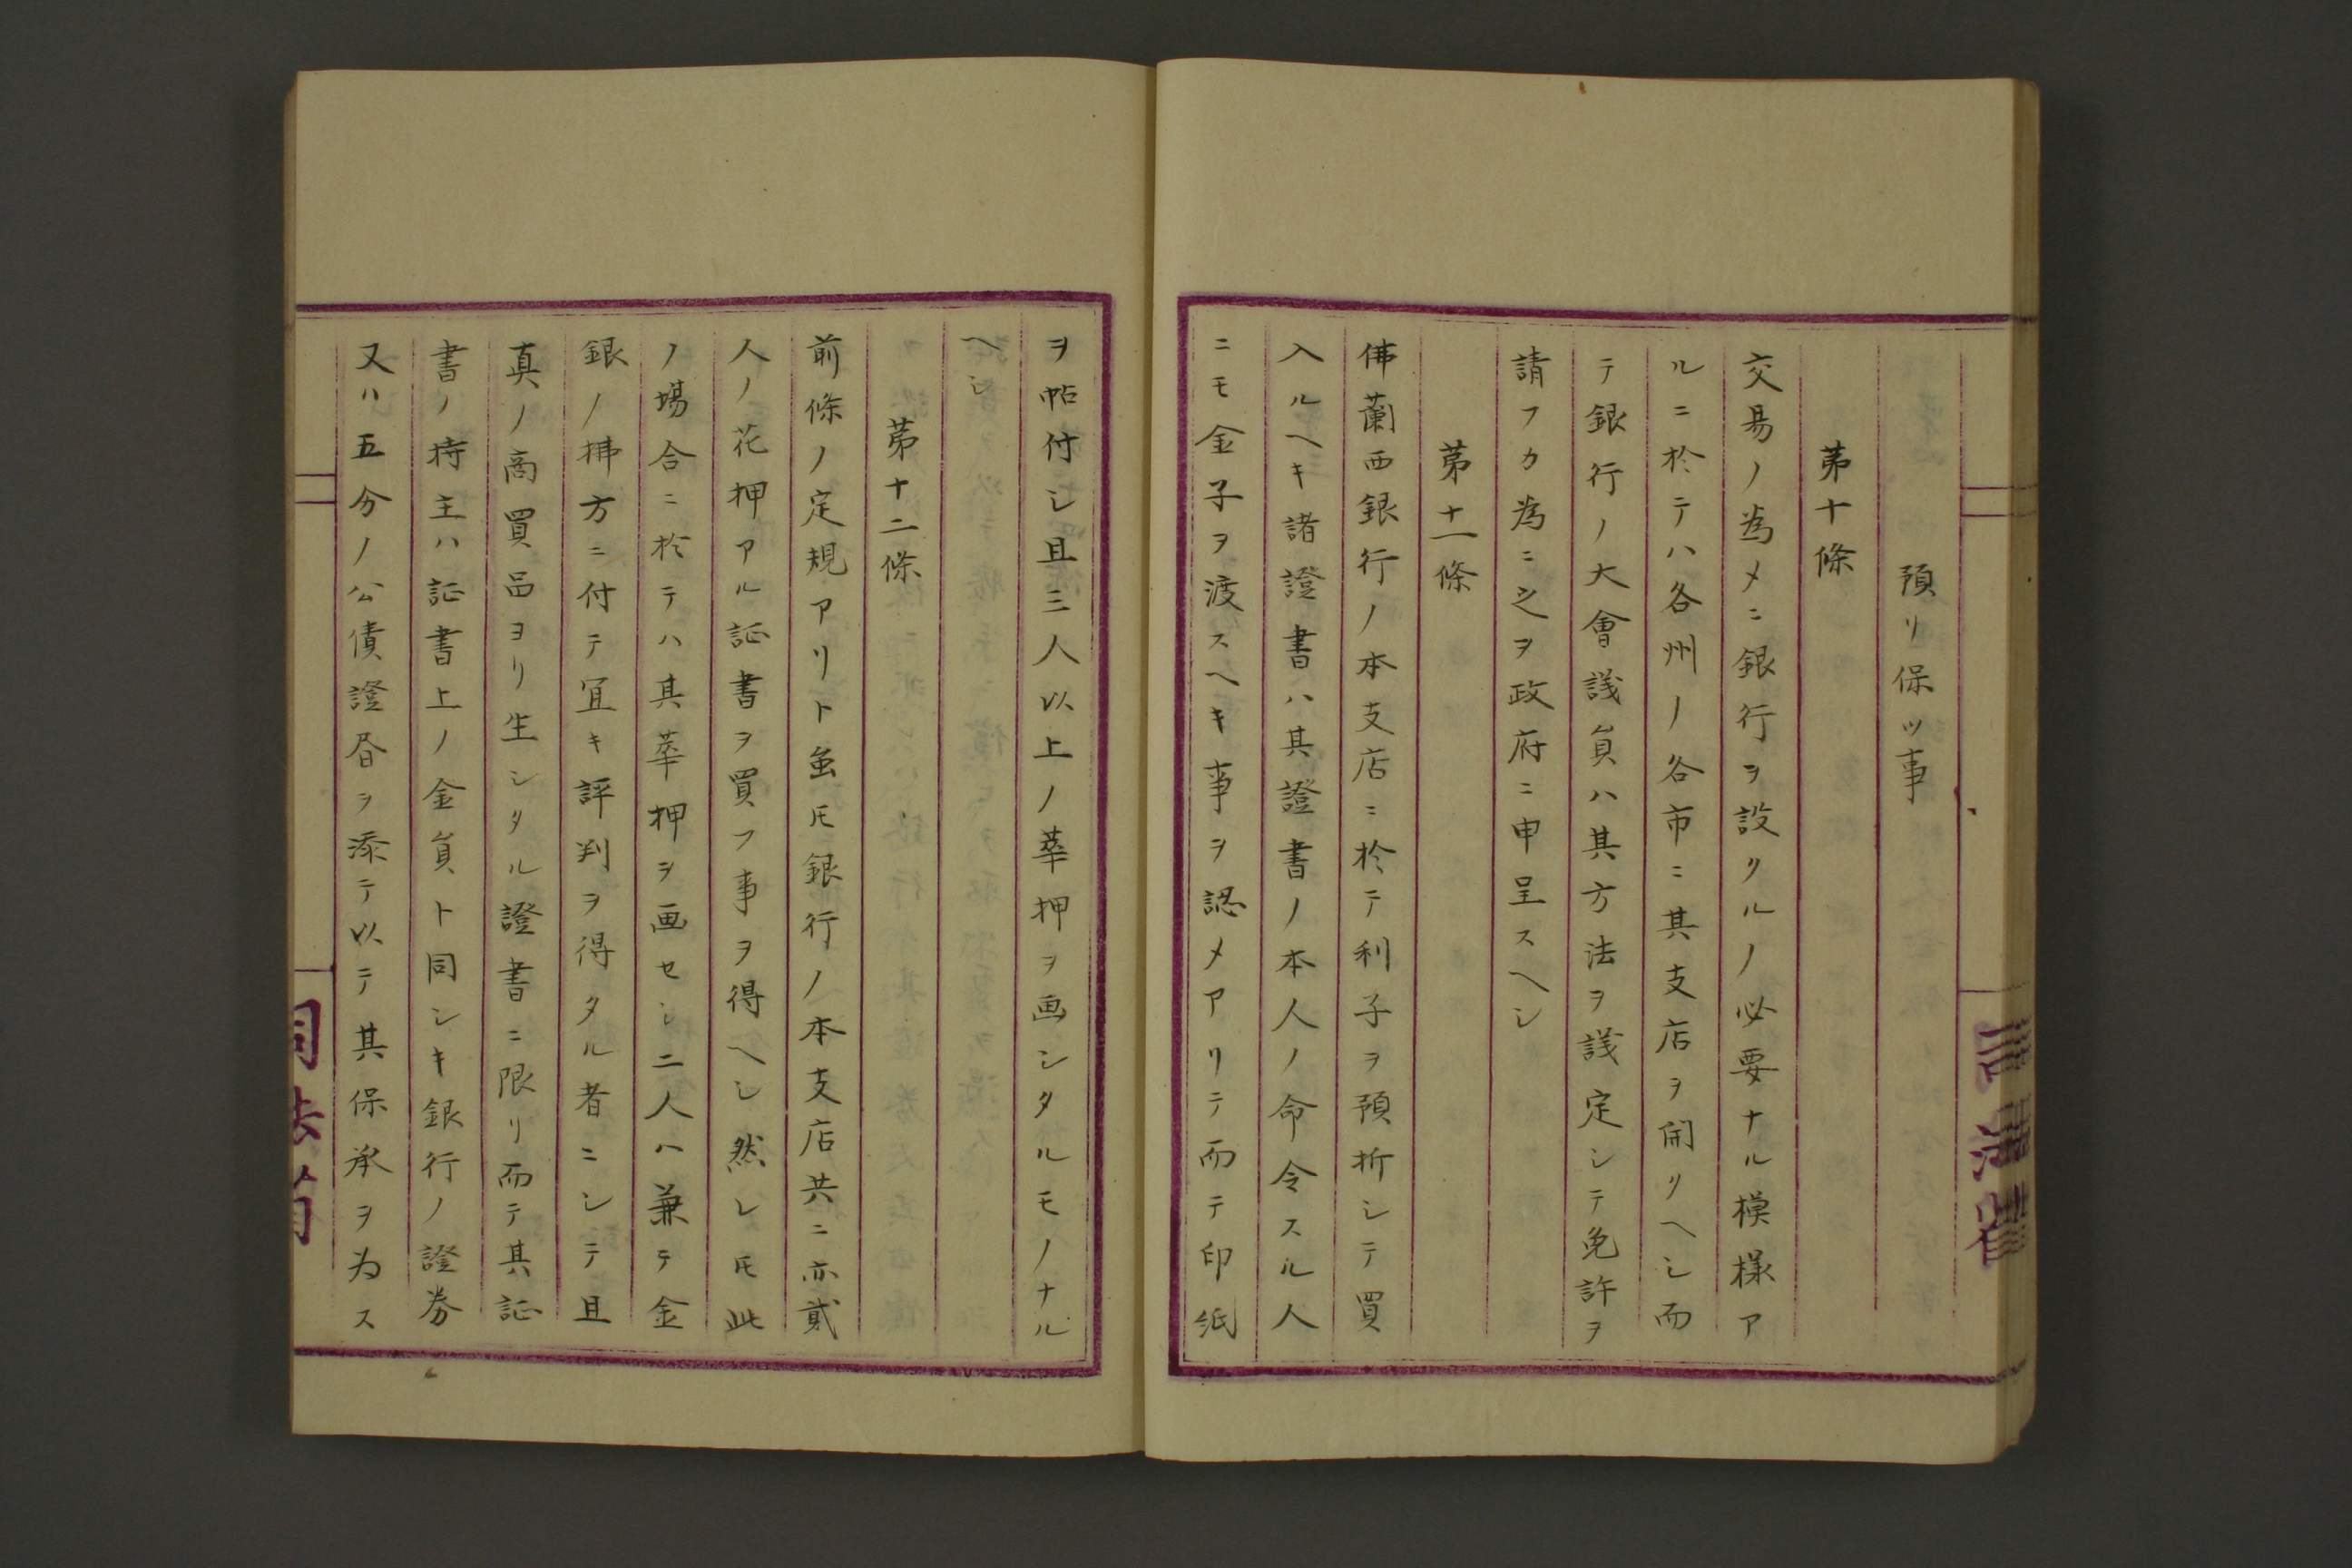 預リ保ツ事
第十條
交易ノ為メニ銀行ヲ設クルノ必要ナル模様ア
ルニ於テハ各州ノ各市ニ其支店ヲ開クヘシ而
テ銀行ノ大會議員ハ其方法ヲ議定シテ免許ヲ
請フカ為ニ之ヲ政府ニ申呈スヘシ
第十一條
佛蘭西銀行ノ本支店ニ於テ利子ヲ預折シテ買
入ルヘキ諸證書ハ其證書ノ本人ノ命令スル人
ニモ金子ヲ渡スヘキ事ヲ認メアリテ而テ印紙
ヲ帖付シ且三人以上ノ華押ヲ画シタルモノナル
ヘシ
第十二條
前條ノ定規アリト虽𪜈銀行ノ本支店共ニ亦貳
人ノ花押アル証書ヲ買フ事ヲ得ヘシ然レ𪜈此
ノ場合ニ於テハ其華押ヲ画セシ二人ハ兼テ金
銀ノ拂方ニ付テ冝キ評判ヲ得タル者ニシテ且
真ノ商買品ヨリ生シタル證書ニ限リ而テ其証
書ノ持主ハ証書上ノ金員ト同シキ銀行ノ證券
又ハ五分ノ公債證昏ヲ添テ以テ其保承ヲ為ス
司法省